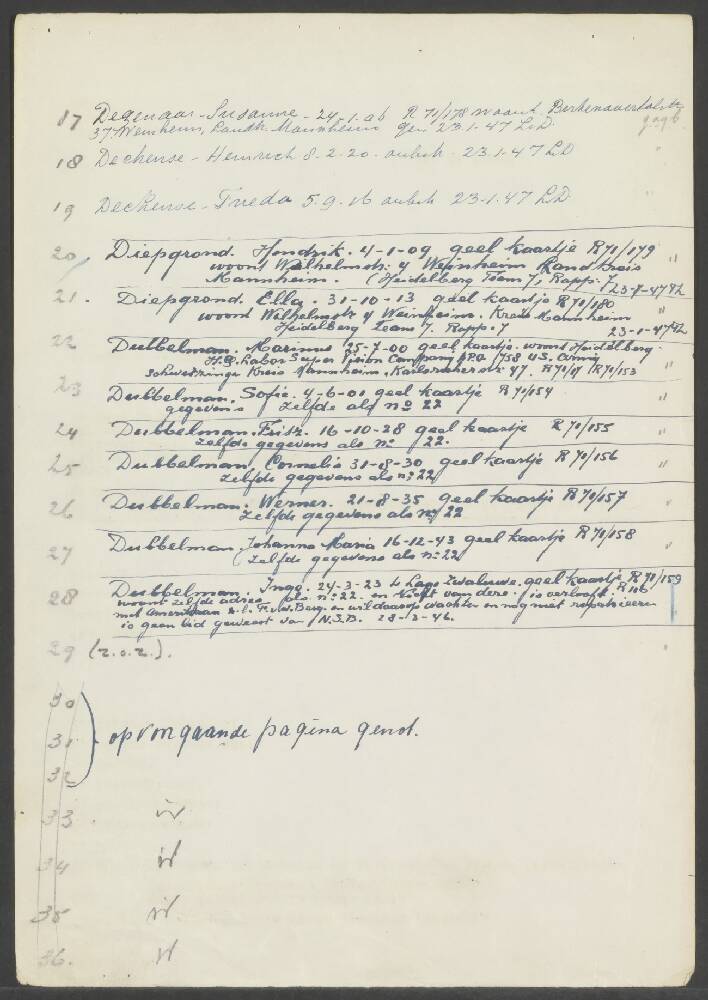 17 Degenaar - Susanne - 24-1-06 R 71/178 woont
37, Weinheim, Landkr. Mannheim gez. 23-1-47 L.D.
18 Deckense - Heinrich 8-2-20 23-1-47 L.D
19 Deckense - Frieda 5-9-16 23-1-47 L.D.
20 Diepgrond. Hendrik. 4-1-09 geel kaartje R 71/179 "
woont Wilhelmstr. 4 Weinheim Landkreis
Mannheim. (Heidelberg Team 7, Rapp: 7
21. Diepgrond. Ella. 31-10-13 geel kaartje R 71/180 23-1-47
woont Wilhelmstr 4 Weinheim. Kreis Mannheim
Heidelberg Team 7. Rapp: 7 23-1-47
22 Dubbelman. Marinus 25-7-00 geel kaartje. woont Heidelberg
H.Q. Labor Super Vision Company 758 U.S. Army
Schwetzingen Kreis Mannheim, Karlsruher str 47. R 71/153
23 Dubbelman. Sofie. 4-6-01 geel kaartje R 71/154 "
gegevens zelfde als no 22
24 Dubbelman. Fritz. 16-10-28 geel kaartje R 71/155 "
zelfde gegevens als no 22.
25 Dubbelman, Cornelis 31-8-30 geel kaartje R 71/156 "
zelfde gegevens als no 22
26 Dubbelman. Werner. 21-8-35 geel kaartje R 71/157 "
zelfde gegevens als no 22
27 Dubbelman, Johanna Maria 16-12-43 geel kaartje R 71/158 "
zelfde gegevens als no 22
28 Dubbelman. Inge. 24-3-23 Lage Zwaluwe. geel kaartje R 71/159
woont zelfde adres als no 22. en heeft van dere. is verloofd.
met Amerikaan en wil daarop wachten en nog niet repatrieeren
is geen lid geweest van N.S.B. 28-12-46.
29 (z.o.z.).
30
31 op voorgaande pagina genot.
32
33.
34
35
36.